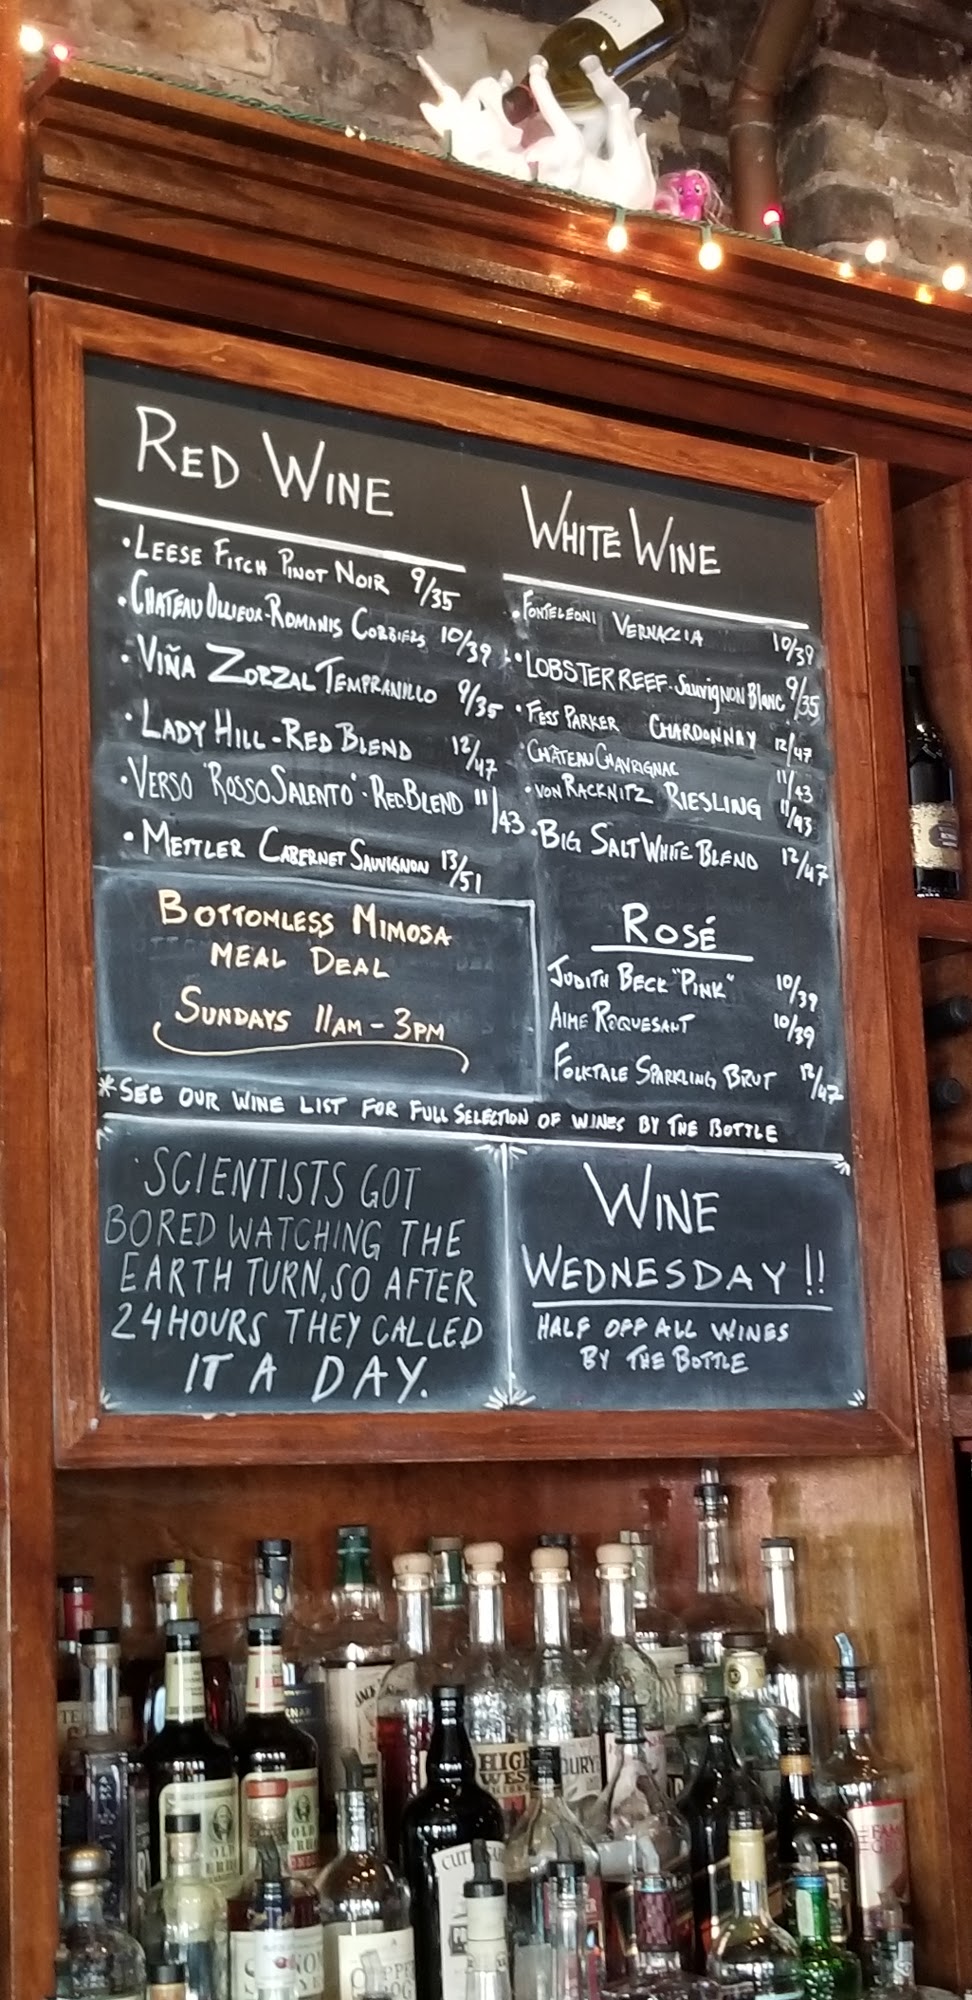 RED WINE
• LEESE FITCH PINOT NOIR 9/35
• CHATEAU OLLIEUX-ROMANIS CORBIERS 10/39
• VIÑA ZORZAL TEMPRANILLO 9/35
• LADY HILL - RED BLEND 12/47
• VERSO "ROSSO SALENTO" - RED BLEND 11/43
• METTLER CABERNET SAUVIGNON 13/51
WHITE WINE
• FONTELEONI VERNACCIA 10/39
• LOBSTER REEF - SAUVIGNON BLANC 9/35
• FESS PARKER CHARDONNAY 12/47
• CHÂTEAU CHAVRIGNAC 11/43
• VON RACKNITZ RIESLING 11/43
• BIG SALT WHITE BLEND 12/47
ROSÉ
JUDITH BECK "PINK" 10/39
AIME ROQUESANT 10/39
FOLKTALE SPARKLING BRUT 12/47
BOTTOMLESS MIMOSA
MEAL DEAL
SUNDAYS 11AM - 3PM
*SEE OUR WINE LIST FOR FULL SELECTION OF WINES BY THE BOTTLE
SCIENTISTS GOT
BORED WATCHING THE
EARTH TURN, SO AFTER
24 HOURS THEY CALLED
IT A DAY.
WINE
WEDNESDAY!!
HALF OFF ALL WINES
BY THE BOTTLE
HIGH
WEST